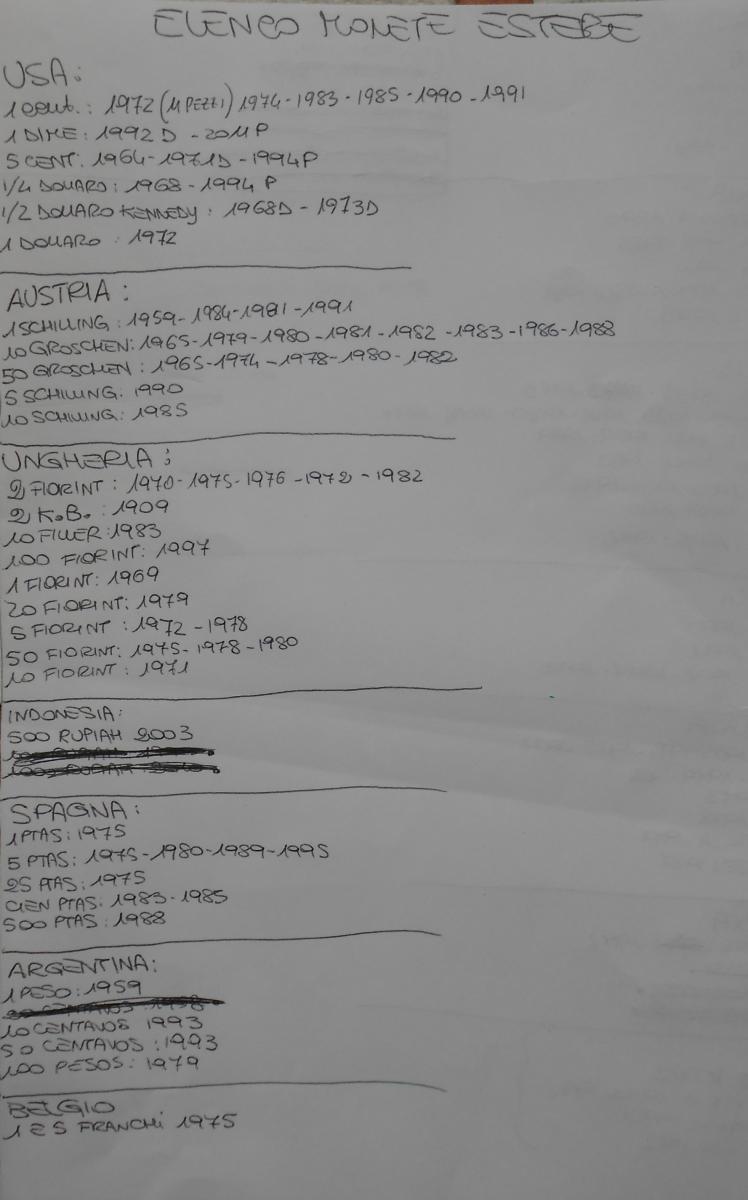 ELENCO MONETE ESTERE
USA:
1 cent.: 1972 (11 PEZZI) 1974-1983-1985-1990-1991
1 DIME: 1992 D - 2011 P
5 CENT: 1964-1971D-1994P
1/4 DOLLARO: 1968-1994 P
1/2 DOLLARO KENNEDY: 1968D - 1973D
1 DOLLARO: 1972
AUSTRIA:
1 SCHILLING: 1959-1984-1981-1991
10 GROSCHEN: 1965-1979-1980-1981-1982-1983-1986-1988
50 GROSCHEN: 1965-1974-1978-1980-1982
5 SCHILLING: 1990
10 SCHILLING: 1985
UNGHERIA:
2 FIORINT: 1970-1975-1976-1972-1982
2 K.B.: 1909
10 FILLER: 1983
100 FIORINT: 1997
1 FIORINT: 1969
20 FIORINT: 1979
5 FIORINT: 1972-1978
50 FIORINT: 1975-1978-1980
10 FIORINT: 1971
INDONESIA:
500 RUPIAH 2003
SPAGNA:
1 PTAS: 1975
5 PTAS: 1975-1980-1989-1995
25 PTAS: 1975
CIEN PTAS: 1983-1985
500 PTAS: 1988
ARGENTINA:
1 PESO: 1959
10 CENTAVOS 1993
50 CENTAVOS: 1993
100 PESOS: 1979
BELGIO
1 E 5 FRANCHI 1975